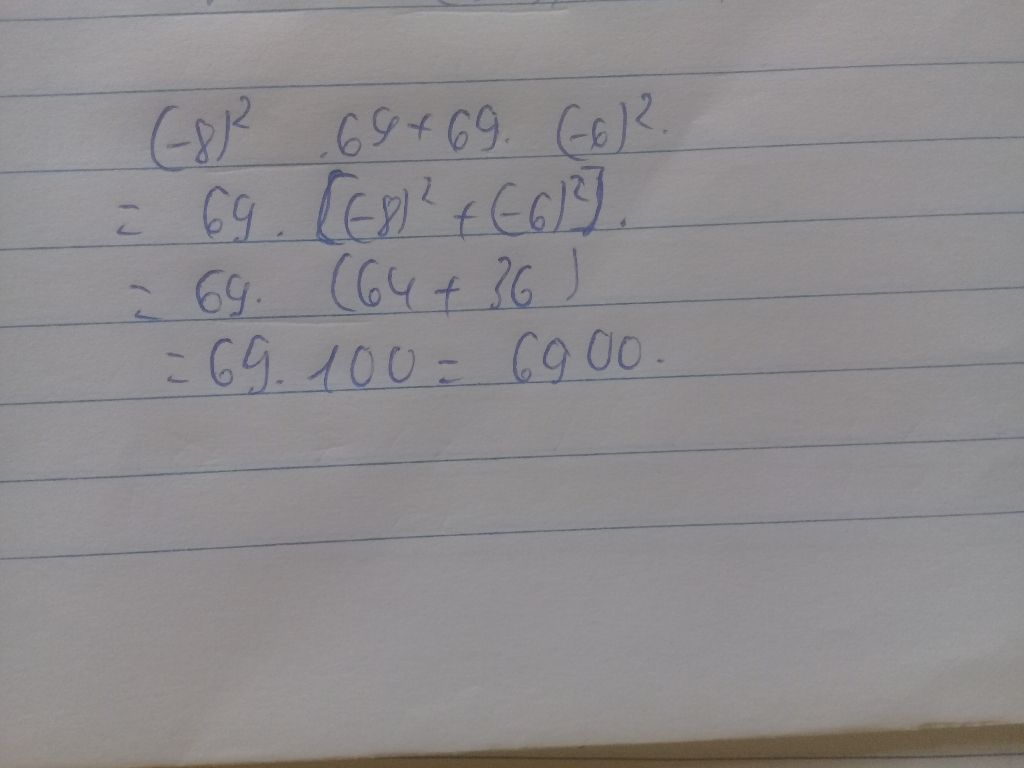 (-8)² .69 + 69. (-6)².
= 69. [(-8)² + (-6)²].
= 69. (64 + 36)
= 69. 100 = 6900.